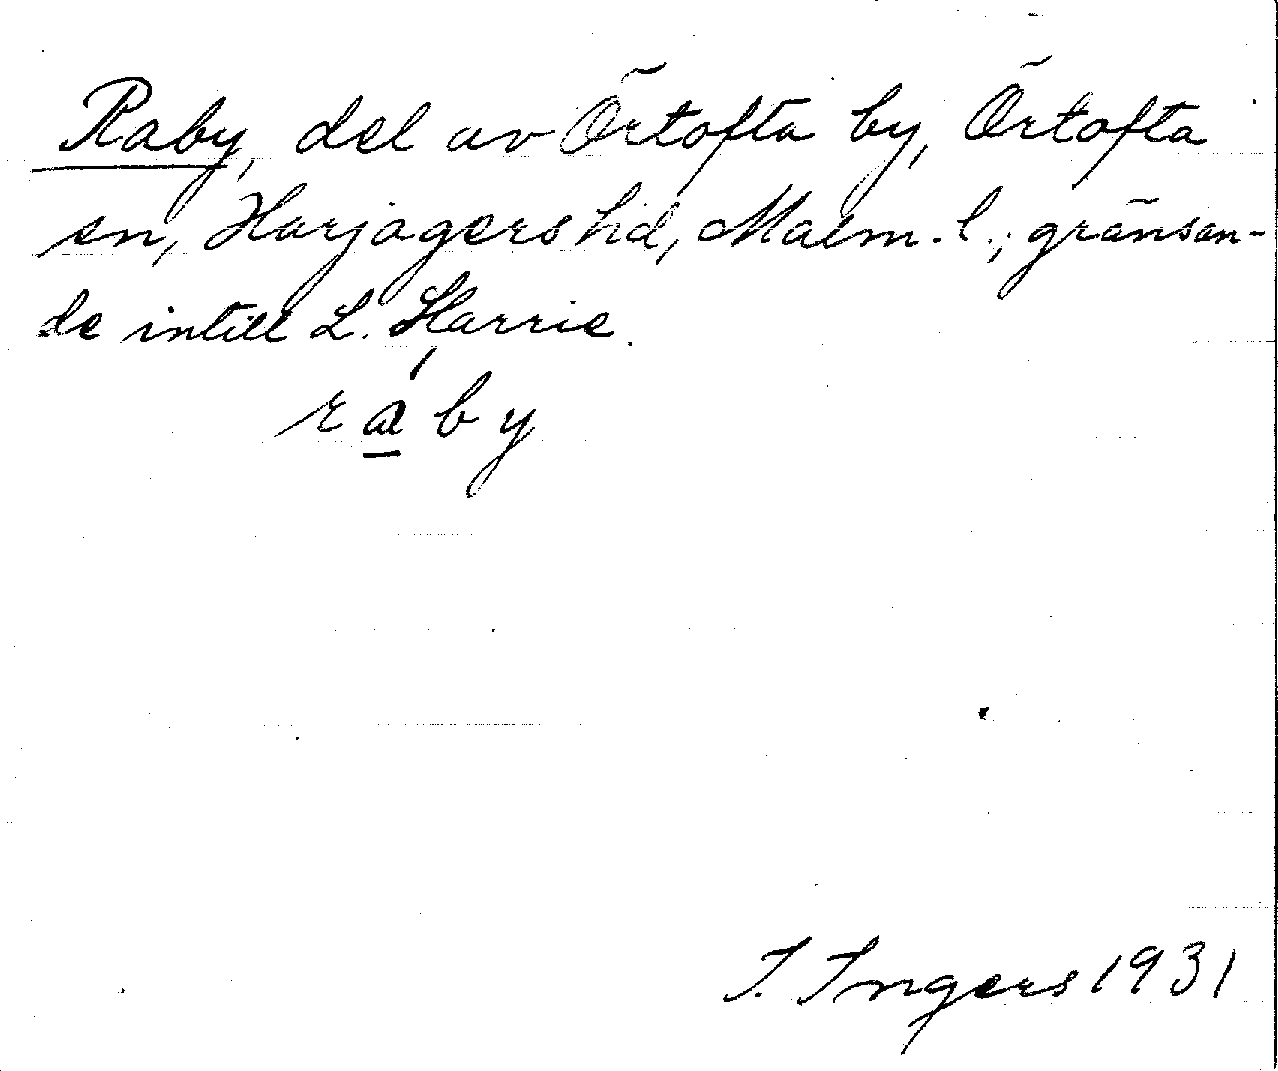 Raby, del av Örtofta by, Örtofta
sn, Harjagers hd, Malm. l., gränsan-
de intill L. Harrie.
ráby
I. Ingers 1931